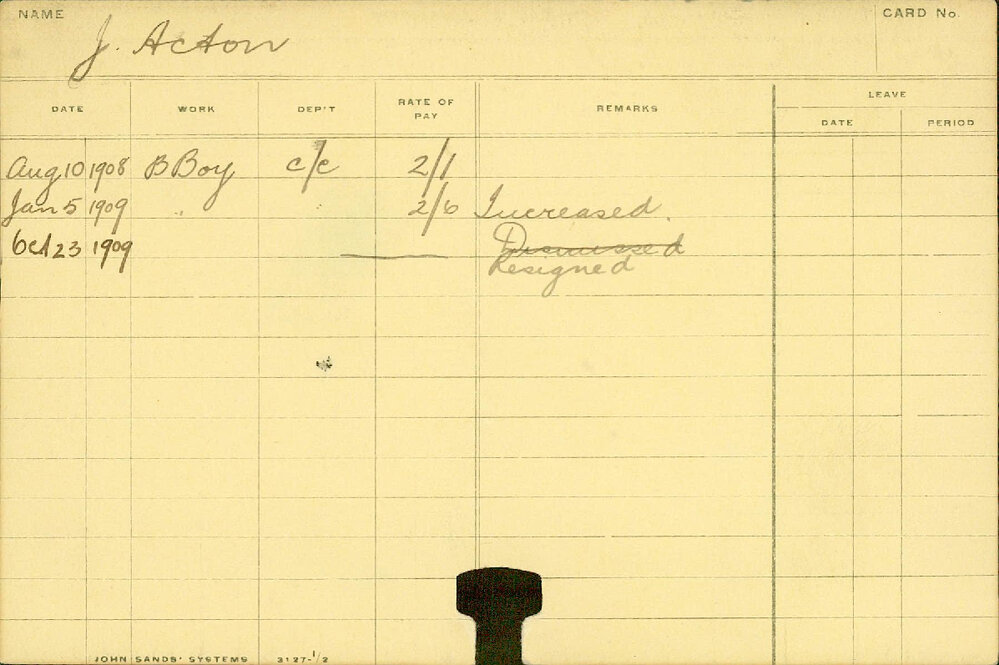 NAME J. Acton CARD No.
DATE WORK DEP'T RATE OF PAY REMARKS LEAVE
DATE PERIOD
Aug 10 1908 B Boy c/c 2/1
Jan 5 1909 " " 2/6 Increased.
Oct 23 1909 Dismissed
Resigned
JOHN SANDS' SYSTEMS 3127-1/2